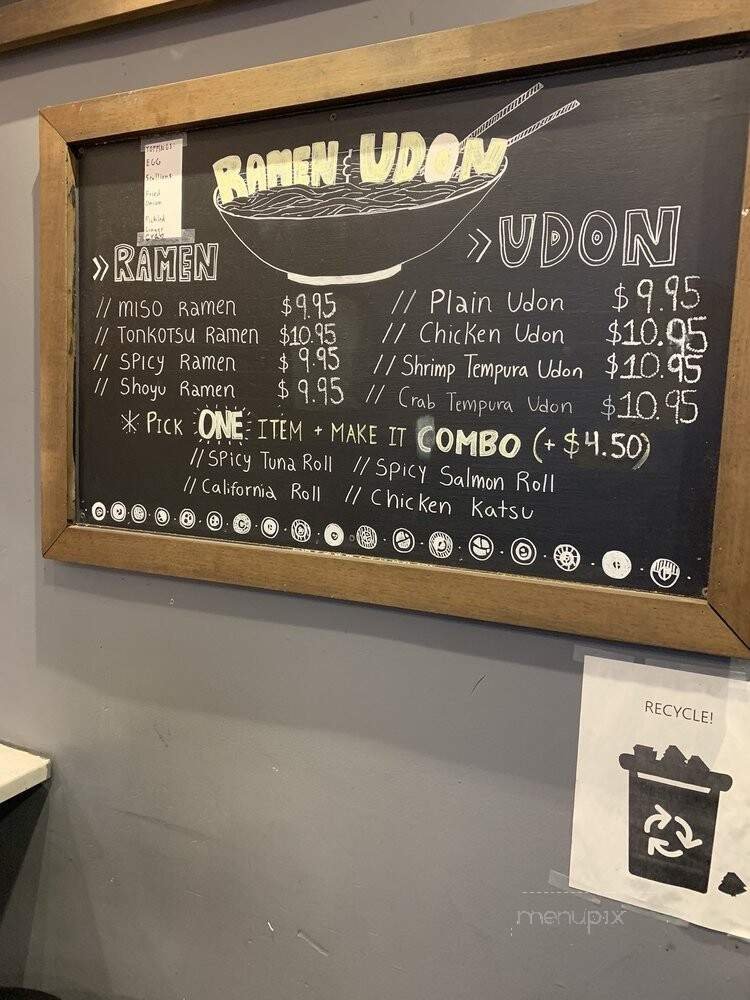 TOPPINGS:
EGG
Scallions
Fried
Onion
Pickled
Ginger
RAMEN & UDON
» RAMEN
// MISO Ramen $9.95
// TONKOTSU Ramen $10.95
// SPICY Ramen $9.95
// Shoyu Ramen $9.95
» UDON
// Plain Udon $9.95
// Chicken Udon $10.95
// Shrimp Tempura Udon $10.95
// Crab Tempura Udon $10.95
* PICK ONE ITEM + MAKE IT COMBO (+ $4.50)
// SPICY Tuna Roll // SPICY Salmon Roll
// California Roll // Chicken Katsu
RECYCLE!
menupix